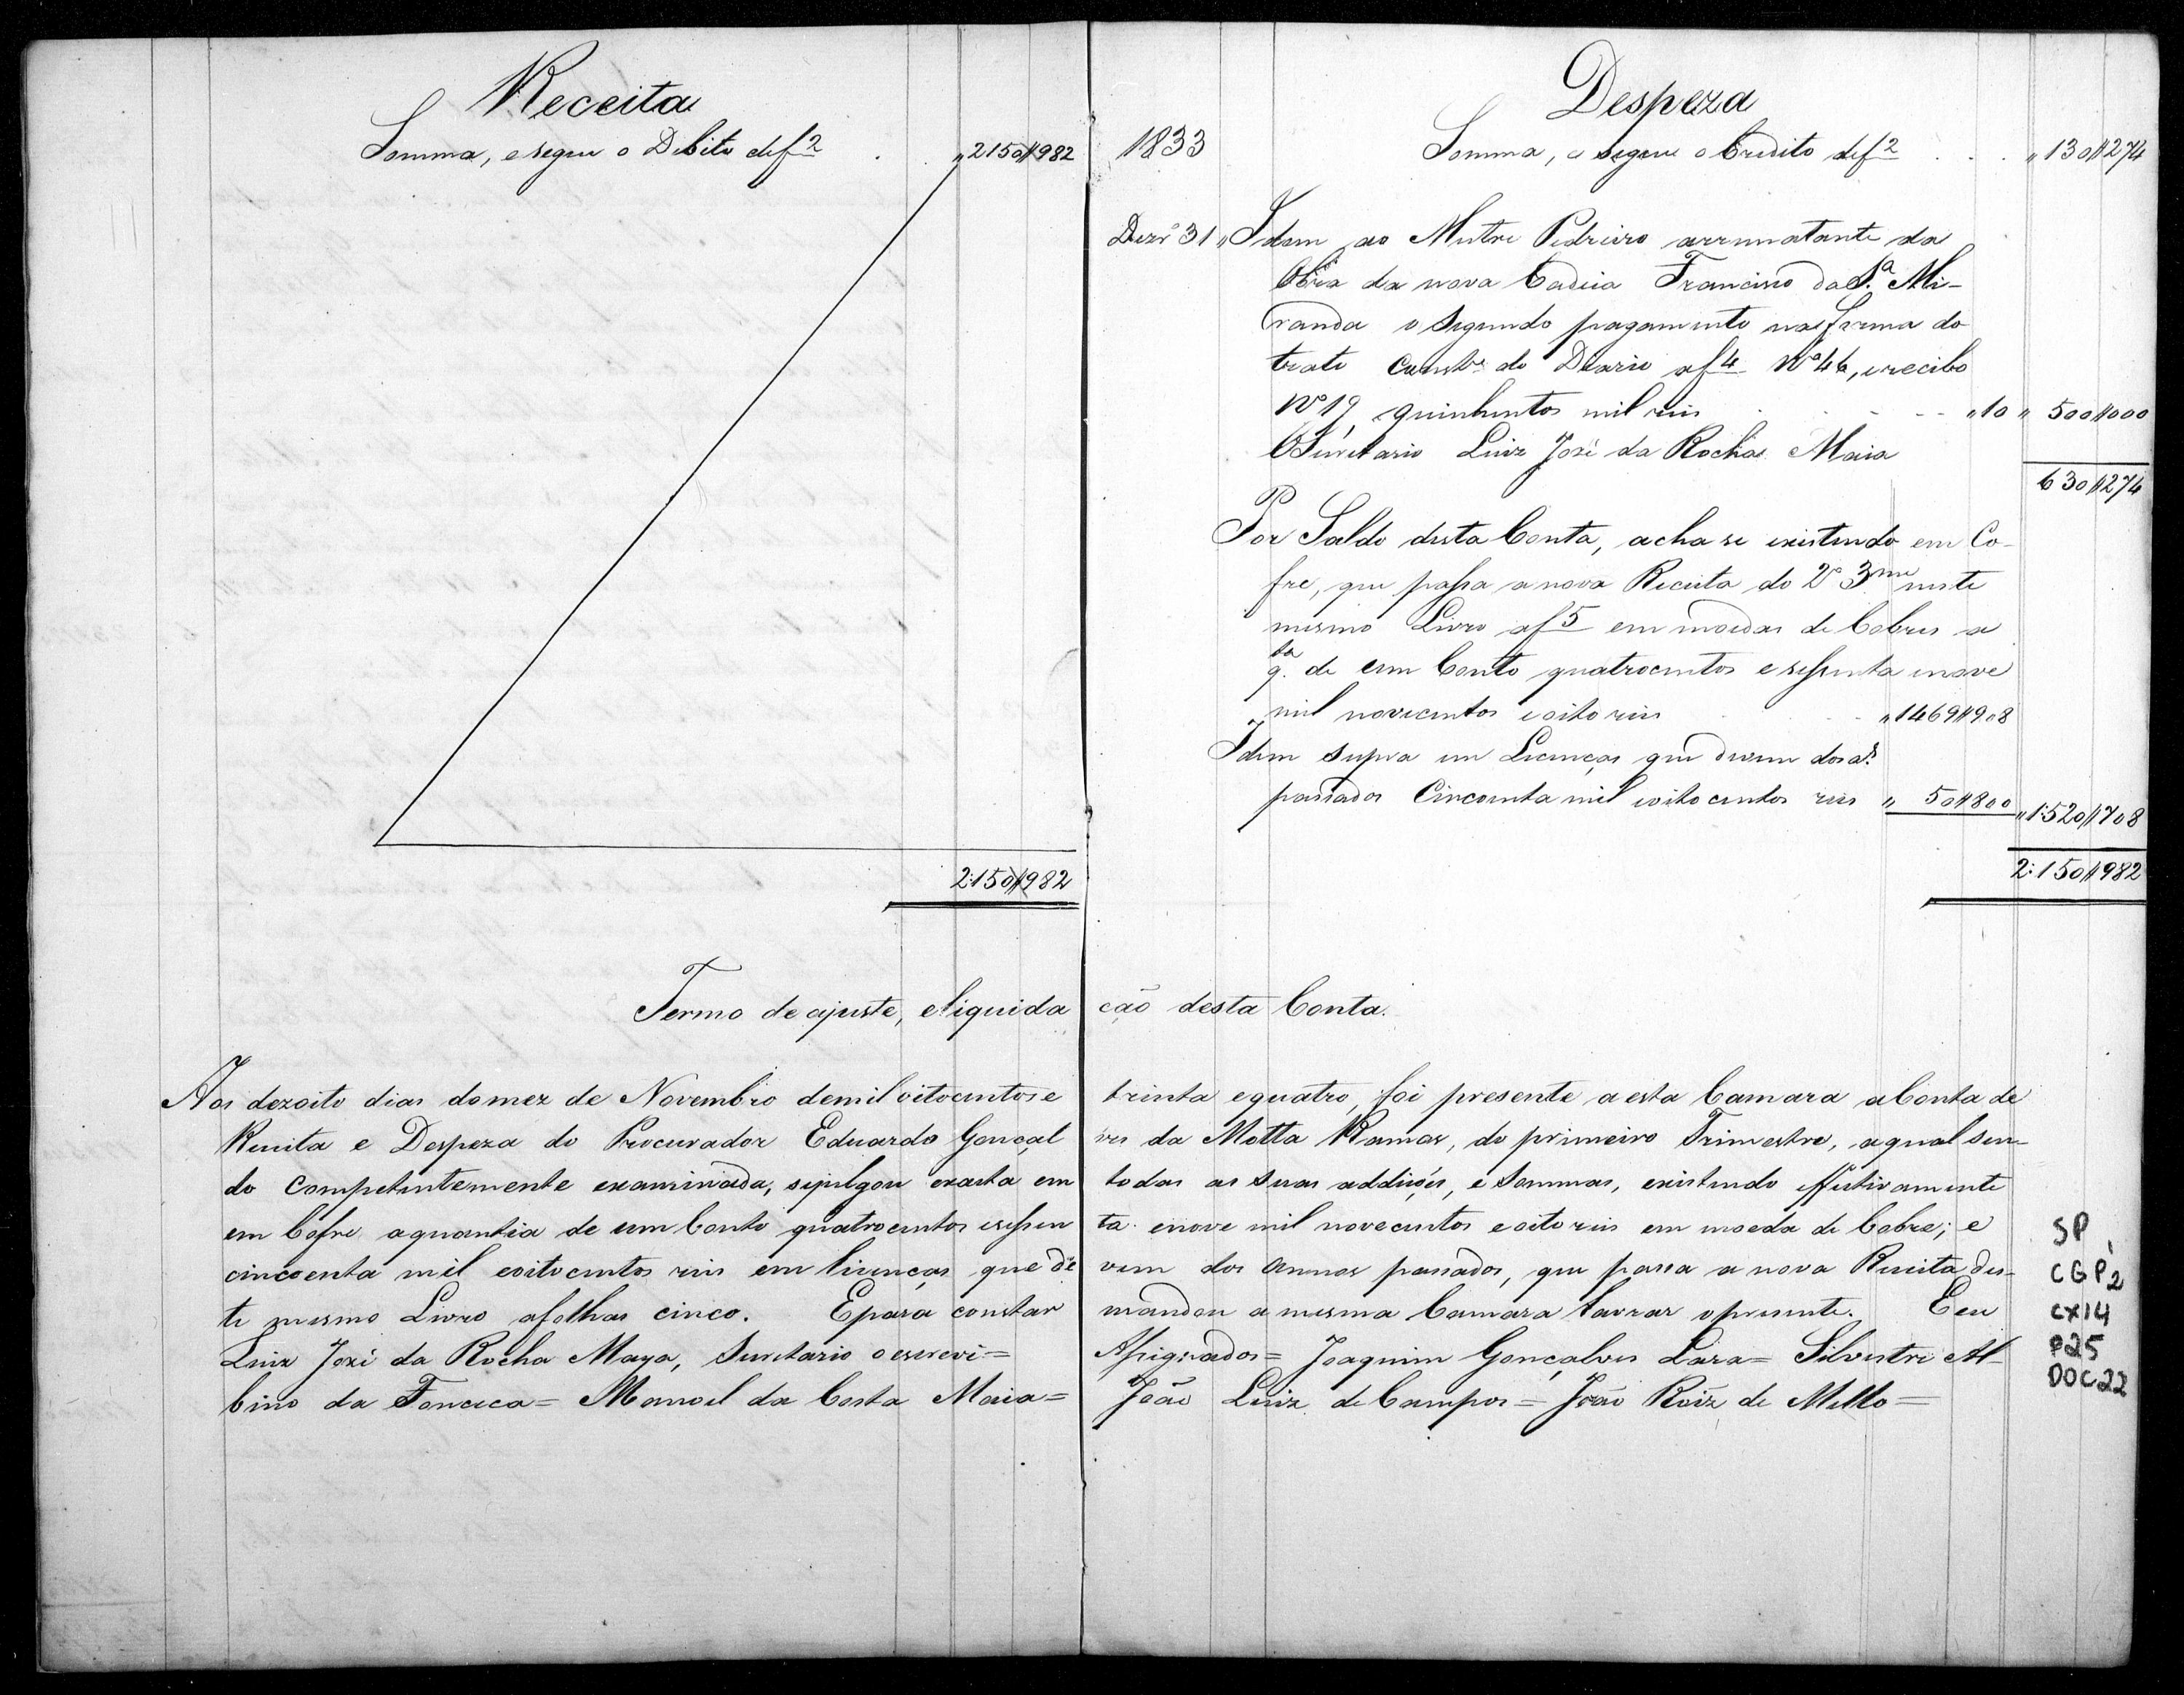 Receita
Somma, e segue o Debito def 2 . . „2150$982
2:150$982
Despeza
1833 Somma, e segue o Credito def 2 . . . „130$274
Dezr.º 31 „ Idem ao Mestre Pedreiro arrematante da
Obra da nova Cadeia Francisco da S.ª Mi-
randa o segundo pagamento na forma do
trato Const.e do Diario af 4 Nº 46, e recibo
Nº 19, quinhentos mil reis . . . „10 „ 500$000
O Secretario Luiz José da Rocha Maia
630$274
Por Saldo desta Conta, acha se existindo em Co-
fre, que passa a nova Receita do 2º 3me neste
mesmo Livro af 5 em moedas de Cobres a
q.ta de um Conto quatrocentos e sessenta e nove
mil novecentos e oito reis . . „1469$908
Idem supra em Licenças que devem dos a.s
passados Cincoenta mil e oito centos reis „ 50$800 „1:520$708
2:150$982
Termo de ajuste, e liquida ção desta Conta.
Aos dezoito dias do mez de Novembro de mil oitocentos e trinta e quatro, foi presente a esta Camara a Conta de
Receita e Despeza do Procurador Eduardo Gonçal ves da Motta Ramos, do primeiro Trimestre, a qual sen-
do competentemente examinada, se julgou exacta em todas as suas addições, e Sommas, existindo effectivamente
em Cofre a quantia de um Conto quatrocentos e sessen ta e nove mil novecentos e oito reis em moeda de Cobre; e
cincoenta mil e oitocentos reis em licenças que de vem dos annos passados, que passa a nova Receita des-
te mesmo Livro a folhas cinco. E para constar mandou a mesma Camara lavrar o presente. E eu
Luiz José da Rocha Maya, Secretario o escrevi = Assignados = Joaquim Gonçalves Lara = Silvestre Al-
bino da Fonceca = Manoel da Costa Maia = João Luiz de Campos = João Roiz de Mello =
SP
CGP2
CX14
P25
DOC22